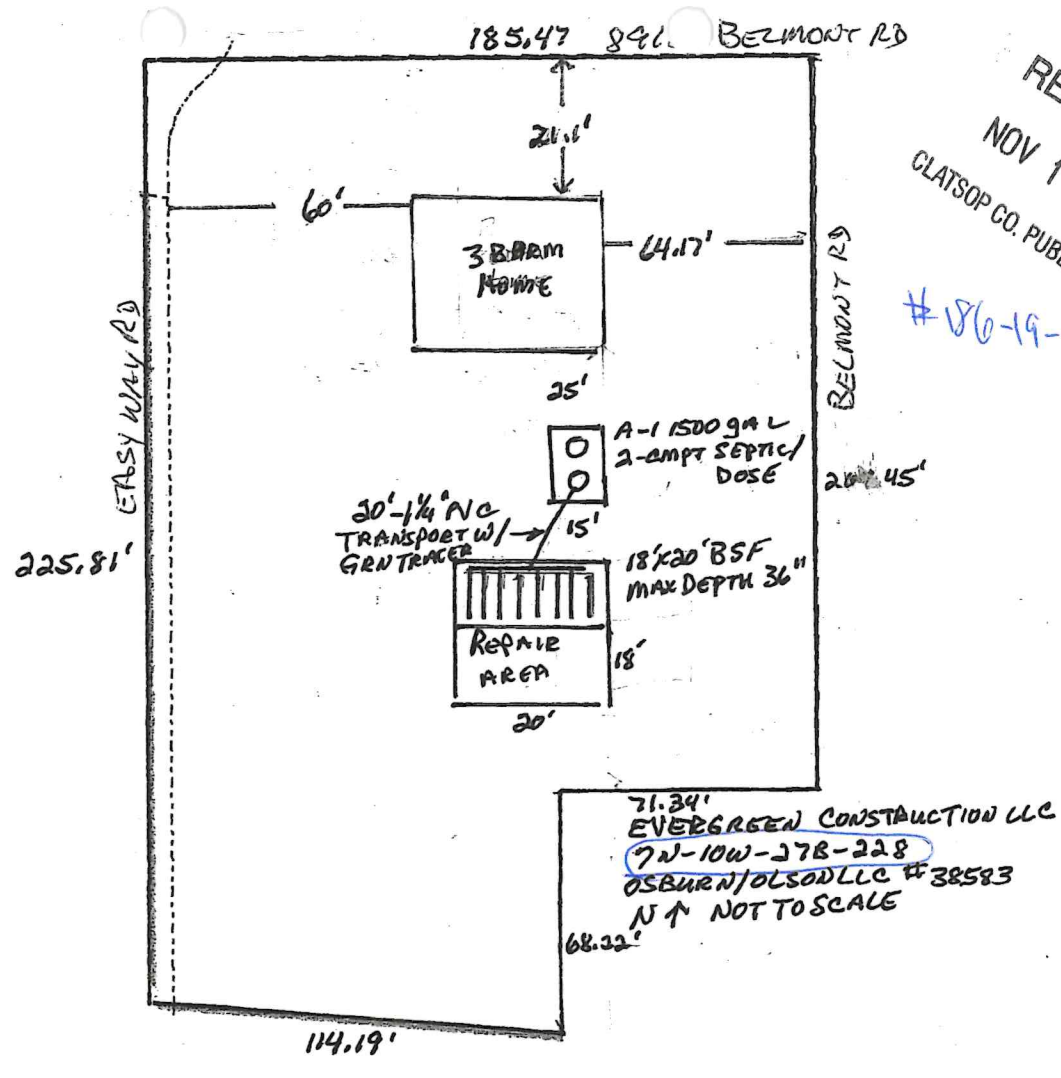 185.47 BELMONT RD
RE
NOV 1
CLATSOP CO. PUB
21.1'
60'
3 BDRM
HOME
64.17'
EASY WAY RD
BELMONT RD
#186-19-
25'
A-1 1500 gAL
2-CMPT SEPTIC/
DOSE
45'
20'-1¼" PVC
TRANSPORT W/
GRN TRACER
15'
225.81'
18'x20' BSF
MAX DEPTH 36"
REPAIR
AREA
18'
20'
71.34'
EVERGREEN CONSTRUCTION LLC
7N-10W-27B-228
OSBURN/OLSON LLC #38583
N↑ NOT TO SCALE
68.22'
114.19'